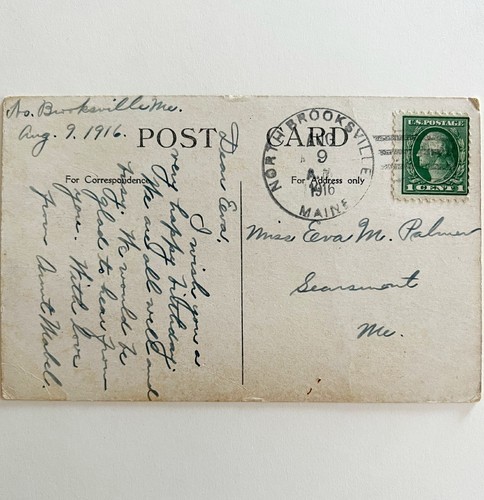 No. Brooksville Me.
Aug. 9. 1916.
POST CARD
For Correspondence
For Address only
Dear Eeva,
I wish you a
very happy birthday
We are all well and
busy. We would be
glad to hear from
you. With love
from Aunt Mabel.
NORTH BROOKSVILLE
AUG
9
1916
MAINE
U.S. POSTAGE
1 CENT 1
Miss Eeva M. Palmer
Searsmont
Me.